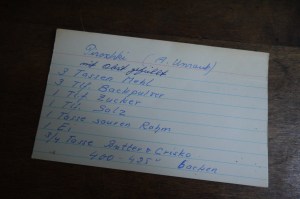 Piroschki (A. Unrauh)
mit Obst gefüllt
3 Tassen Mehl
3 Tlf. Backpulver
1 Tlf Zucker
1 Tlf. Salz
1 Tasse sauren Rahm
1 Ei
3/4 Tasse Butter & Crisko
400 425 - Backen